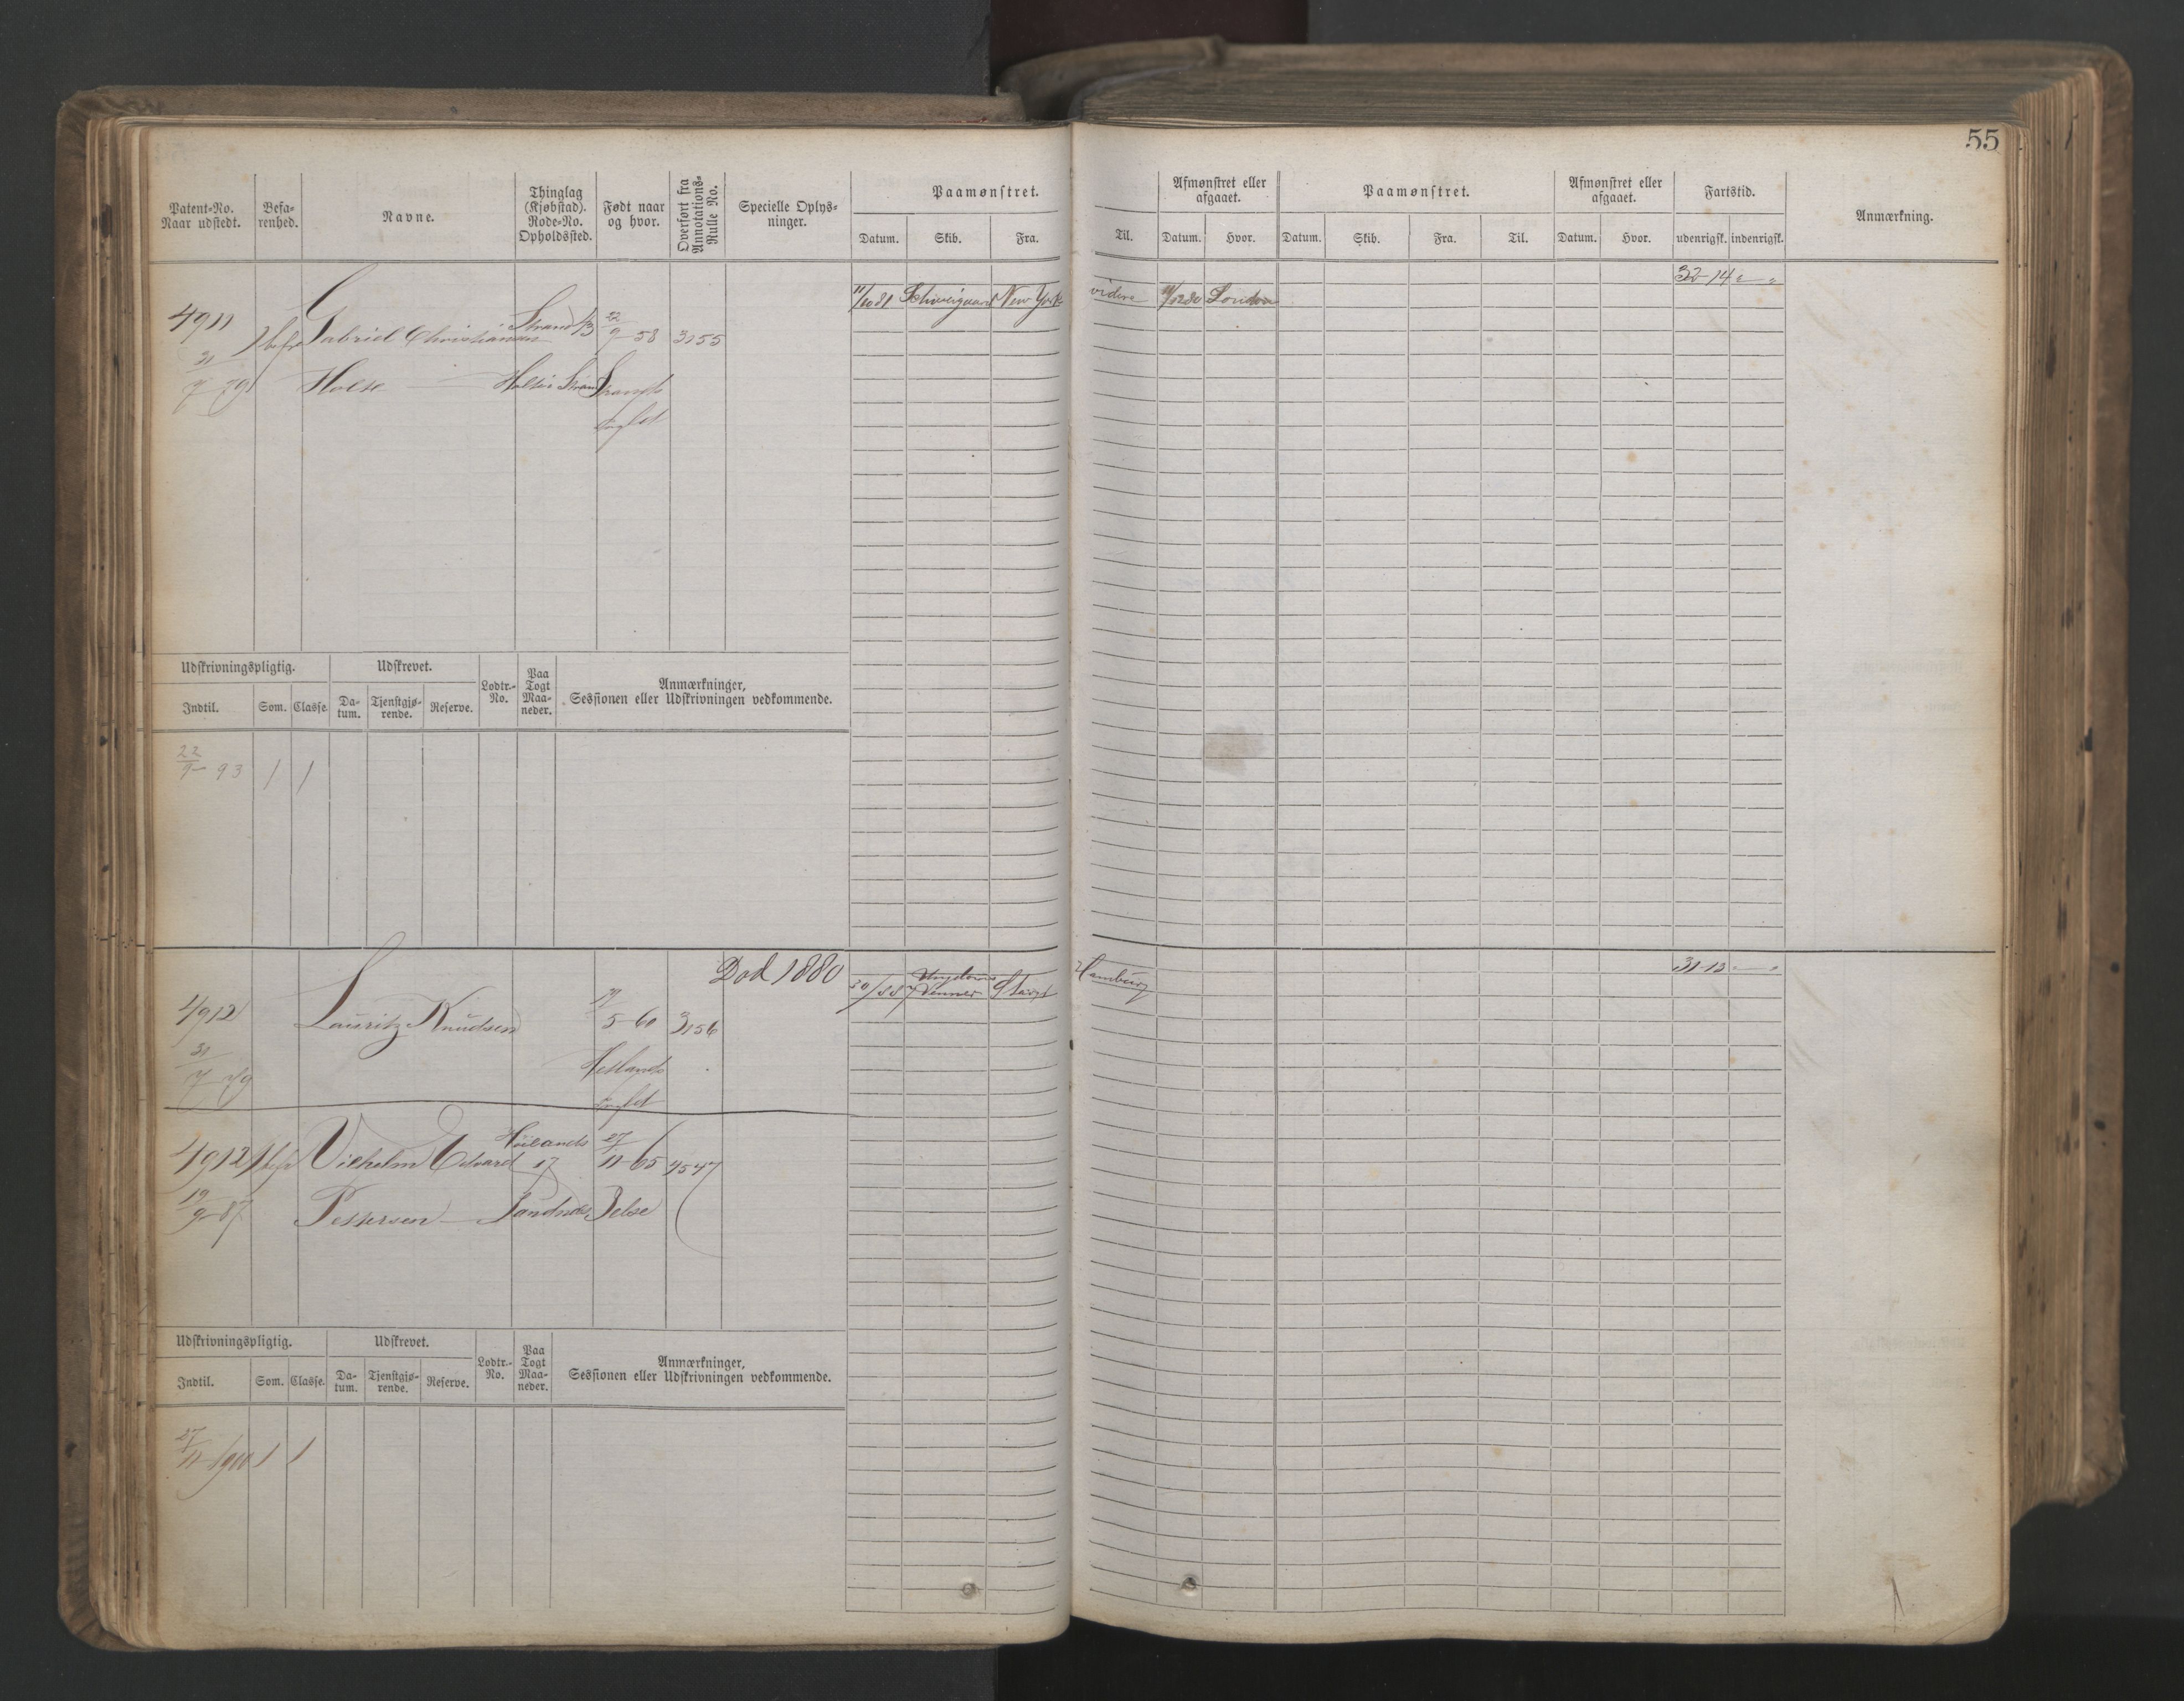 55
Patent-No. Naar udstedt.
Befa-renhed.
Navne.
Thinglag (Kjøbstad). Rode-No. Opholdssted.
Født naar og hvor.
Overført fra Annotations-Rulle No.
Specielle Oplys-ninger.
Paamønstret.
Datum. Skib. Fra. Til.
Afmønstret eller afgaaet.
Datum. Hvor.
Paamønstret.
Datum. Skib. Fra. Til.
Afmønstret eller afgaaet.
Datum. Hvor.
Fartstid.
udenrigsk. indenrigsk.
Anmærkning.
32-14
11/10 81 Schweigaard New York videre 11/12 80 London
4911 1 bef Gabriel Christiansen Strand 13 22/9 58 3155
31/7 79 Holte Holte i Strand Strands
Prgld
Udskrivningspligtig.
Indtil. Som. Classe.
Udskrevet.
Da-tum. Tjenstgjø-rende. Reserve.
Lodtr.-No.
Paa Togt Maa-neder.
Anmærkninger, Sessionen eller Udskrivningen vedkommende.
22/9 93 1 1
Død 1880
Venner Hamburg 31-13
4912 Lauritz Knudsen 5-60 3156
31/7 79 Hetlands
Prgld
4912 1 bef Vilhelm Edvard Høilands 17 27/11-65 4547
19/9-87 Pettersen Sandnæs Jelse
Udskrivningspligtig.
Indtil. Som. Classe.
Udskrevet.
Da-tum. Tjenstgjø-rende. Reserve.
Lodtr.-No.
Paa Togt Maa-neder.
Anmærkninger, Sessionen eller Udskrivningen vedkommende.
27/11-1900 1 1